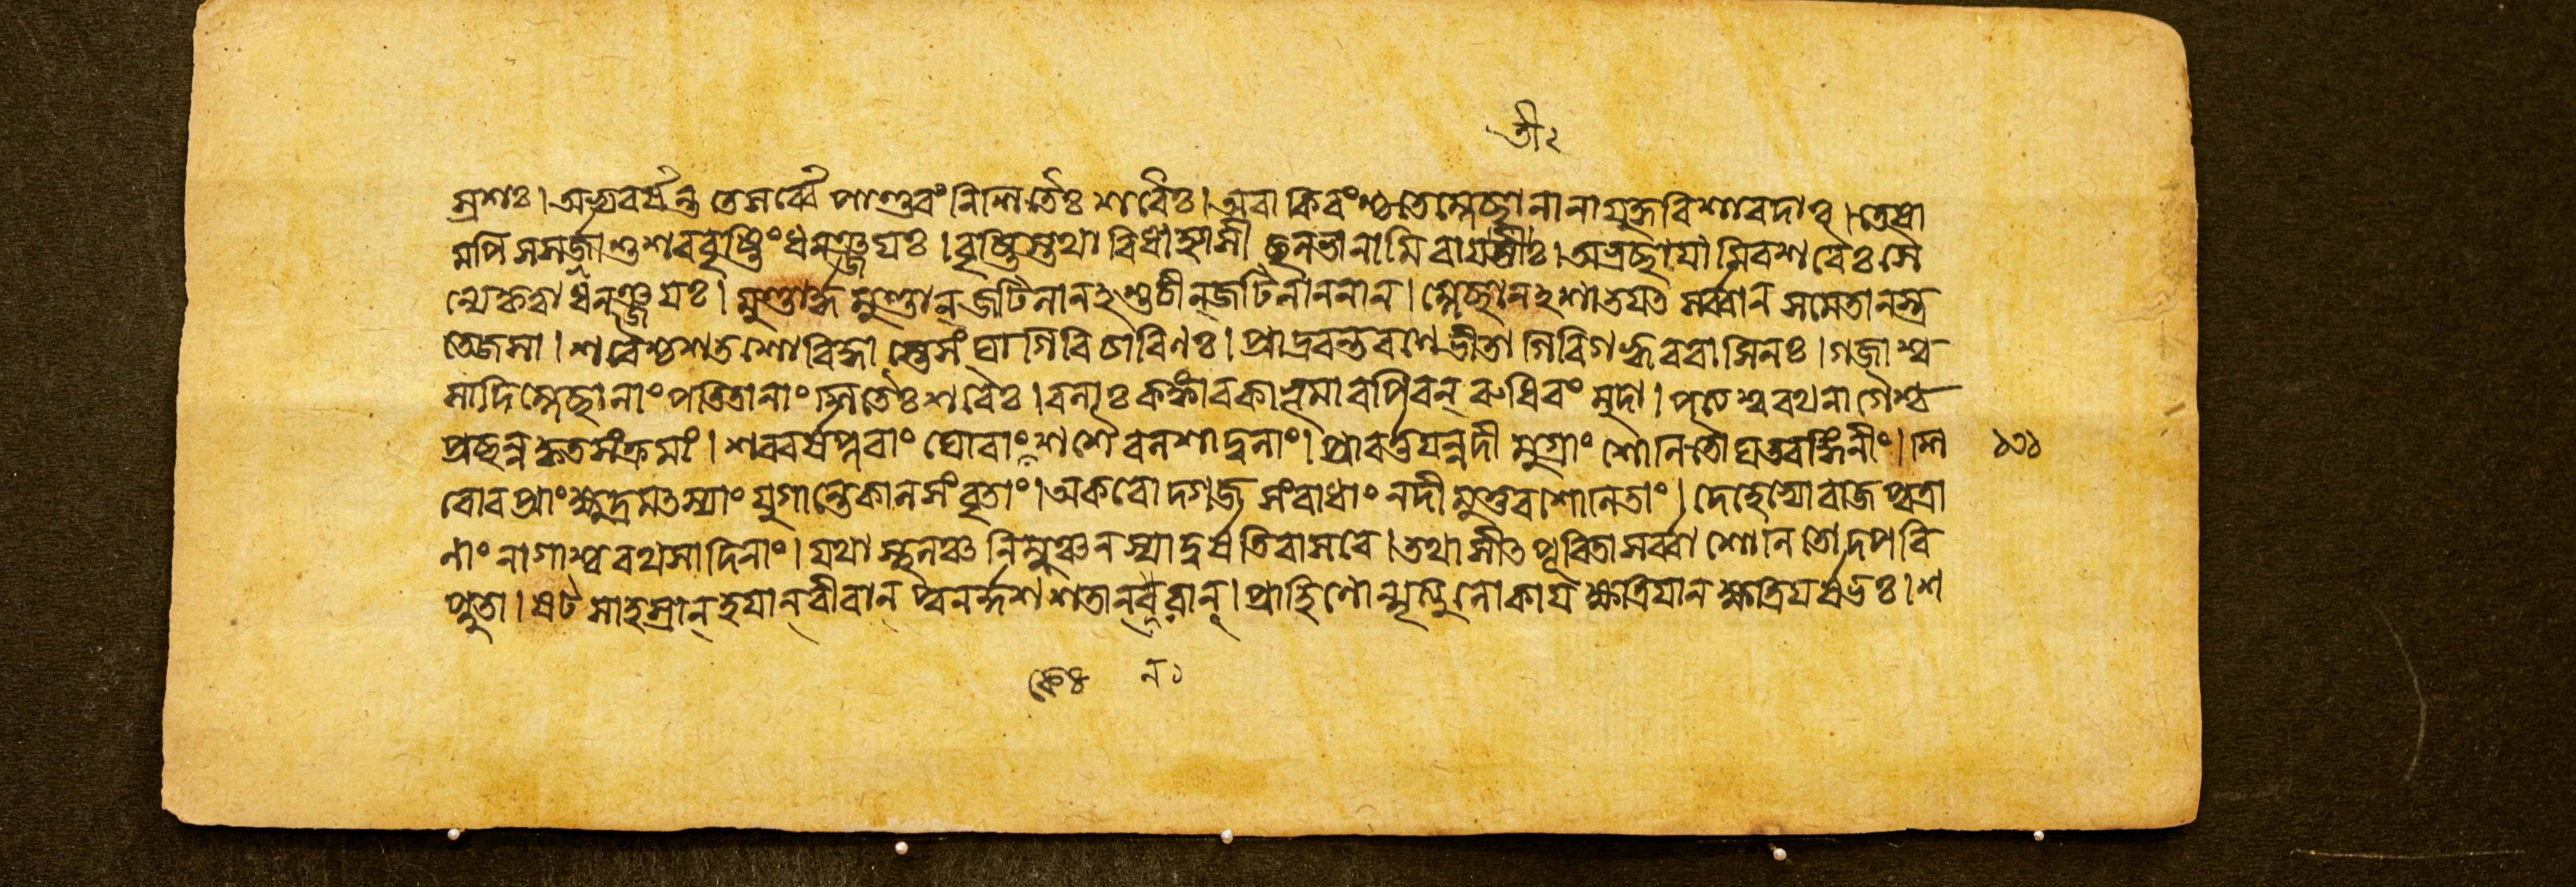 স্রশঃ। অভ্যবর্ষন্ত তে সর্ব্বে পাণ্ডবং নিশিতৈঃ শরৈঃ। অবাকিরংশ্চ তে ম্লেচ্ছা নানাযুদ্ধবিশারদাঃ। তেষা
মপি সসর্জ্জাশু শরবৃষ্টিং ধনঞ্জয়ঃ। বৃষ্টিস্তথাবিধা হ্যাসীচ্ছলভানামিবায়তীঃ। অভ্রছায়ামিব শরৈঃ সৈ
ন্যে কৃত্বা ধনঞ্জয়ঃ। মুণ্ডার্দ্ধমুণ্ডান্ জটিলানশুচীন্ জটিলাননান্। ম্লেছানশাতয়ৎ সর্ব্বান্ সমেতানস্ত্র
তেজসা। শরৈশ্চ শতশো বিদ্ধাস্তে সংঘা গিরিচারিণঃ। প্রাদ্রবন্ত রণে ভীতা গিরিগহ্বরবাসিনঃ। গজাশ্ব
সাদিম্লেছানাং পতিতানাং শিতৈঃ শরৈঃ। বলাঃ কঙ্কা বৃকা ভূমাবপিবন্ রুধিরং মুদা। পত্ত্যশ্বরথনাগৈশ্চ
প্রছন্নকৃতসংক্রমাং। শরবর্ষপ্লবাং ঘোরাং কেশশৈবলশাদ্বলাং। প্রাবর্ত্তয়ন্নদীমুগ্রাং শোণিতৌঘতরঙ্গিণীং। শি ১৩১
রোরত্নাং ক্ষুদ্রমৎস্যাং যুগান্তে কালসংবৃতাং। অকরোদ্গজসংবাধাং নদীমুত্তরশোণিতাং। দেহেভ্যো রাজপুত্রা
ণাং নাগাশ্বরথসাদিনাং। যথা স্থলঞ্চ নিম্নঞ্চ ন স্যাদ্বর্ষতি বাসবে। তথাসীৎ সর্ব্বা পরি
প্লুতা। ষট্ সাহস্রান্ হয়ান্ বীরান্ পুনর্দ্দশশতান্ বরান্। প্রাহিণোন্মৃত্যুলোকায় ক্ষত্রিয়ান্ ক্ষত্রিয়র্ষভঃ। শ